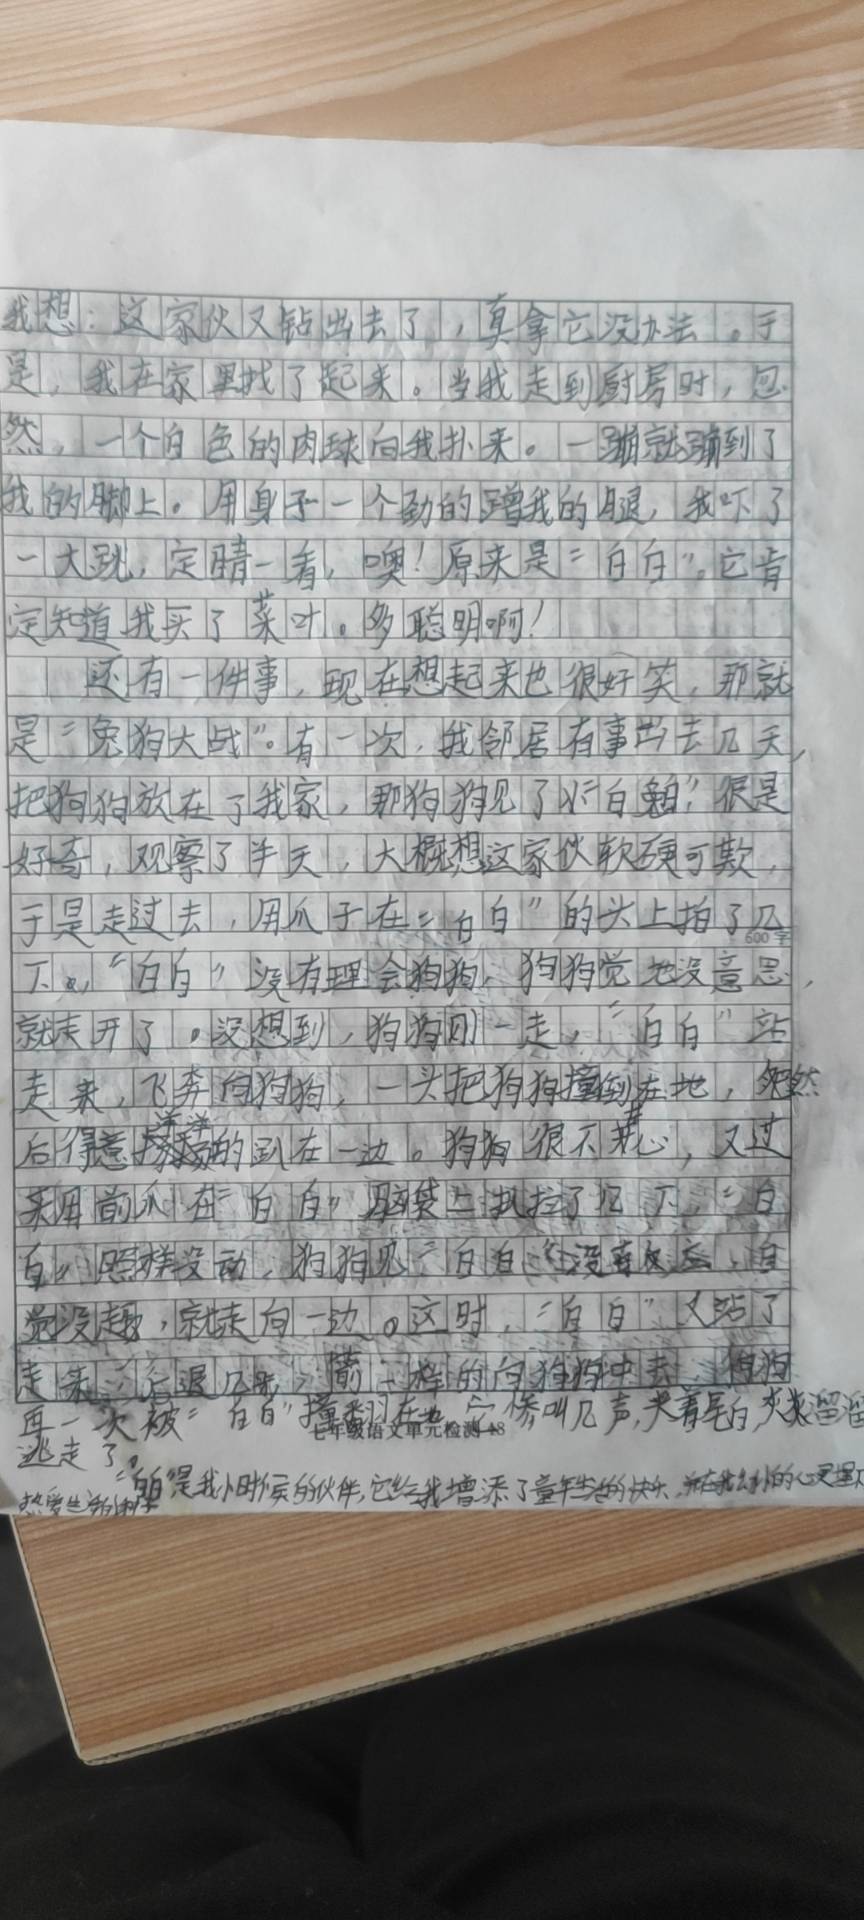 我想：这家伙又钻出去了，真拿它没办法。于
是，我在家里找了起来。当我走到厨房时，忽
然，一个白色的肉球向我扑来。一蹦就蹦到了
我的脚上。用身子一个劲的蹭我的腿，我吓了
一大跳，定睛一看，噢！原来是“白白”。它肯
定知道我买了菜叶。多聪明啊！
还有一件事，现在想起来也很好笑，那就
是“兔狗大战”。有一次，我邻居有事出去几天，
把狗狗放在了我家，那狗狗见了“白白”很是
好奇，观察了半天，大概想这家伙软硬可欺，
于是走过去，用爪子在“白白”的头上拍了几
600字
下。“白白”没有理会狗狗，狗狗觉地没意思，
就走开了。没想到，狗狗刚一走，“白白”站
走来，飞奔向狗狗，一头把狗狗撞倒在地，然
后得意洋洋的趴在一边。狗狗很不甘心，又过
来用前爪在“白白”脑袋上扒拉了几下，“白
白”照样没动，狗狗见“白白”没有反应，自
觉没趣，就走向一边。这时，“白白”又站了
走来，后退几步，箭一样的向狗狗冲去，狗狗
再一次被“白白”撞翻在地，惨叫几声，夹着尾白，灰溜溜
七年级语文单元检测-18
逃走了。
是我小时候的伙伴，它给我增添了童年生活的快乐，并在我幼小的心灵里
热爱生活的